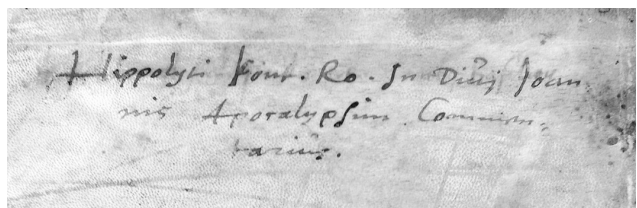 Hippolyti Pont. Ro. In Divi Joan-
nis Apocalypsim Commen-
tarius.